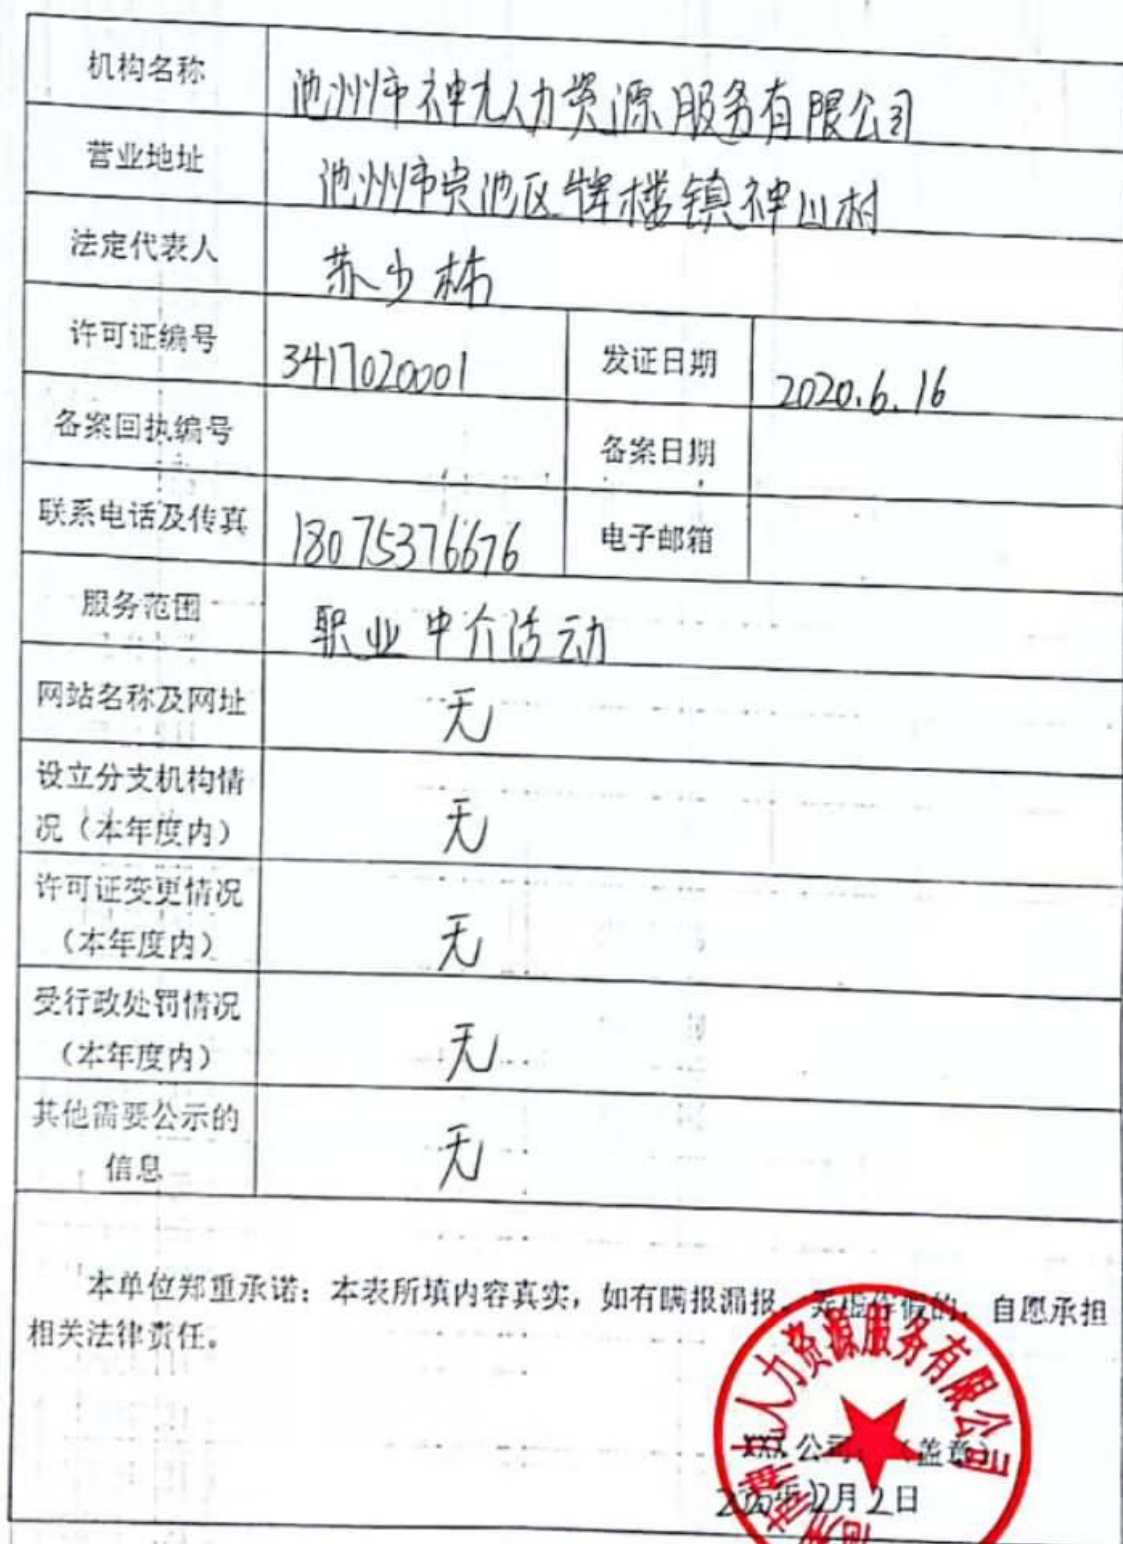 机构名称 池州市神九人力资源服务有限公司
营业地址 池州市贵池区牌楼镇神山村
法定代表人 苏少栋
许可证编号 3417020001 发证日期 2020.6.16
备案回执编号 备案日期
联系电话及传真 18075376676 电子邮箱
服务范围 职业中介活动
网站名称及网址 无
设立分支机构情
况（本年度内） 无
许可证变更情况
（本年度内） 无
受行政处罚情况
（本年度内） 无
其他需要公示的
信息 无
本单位郑重承诺：本表所填内容真实，如有瞒报漏报、弄虚作假的，自愿承担
相关法律责任。
人力资源服务有限公司
XXX公司：（盖章）
年12月2日